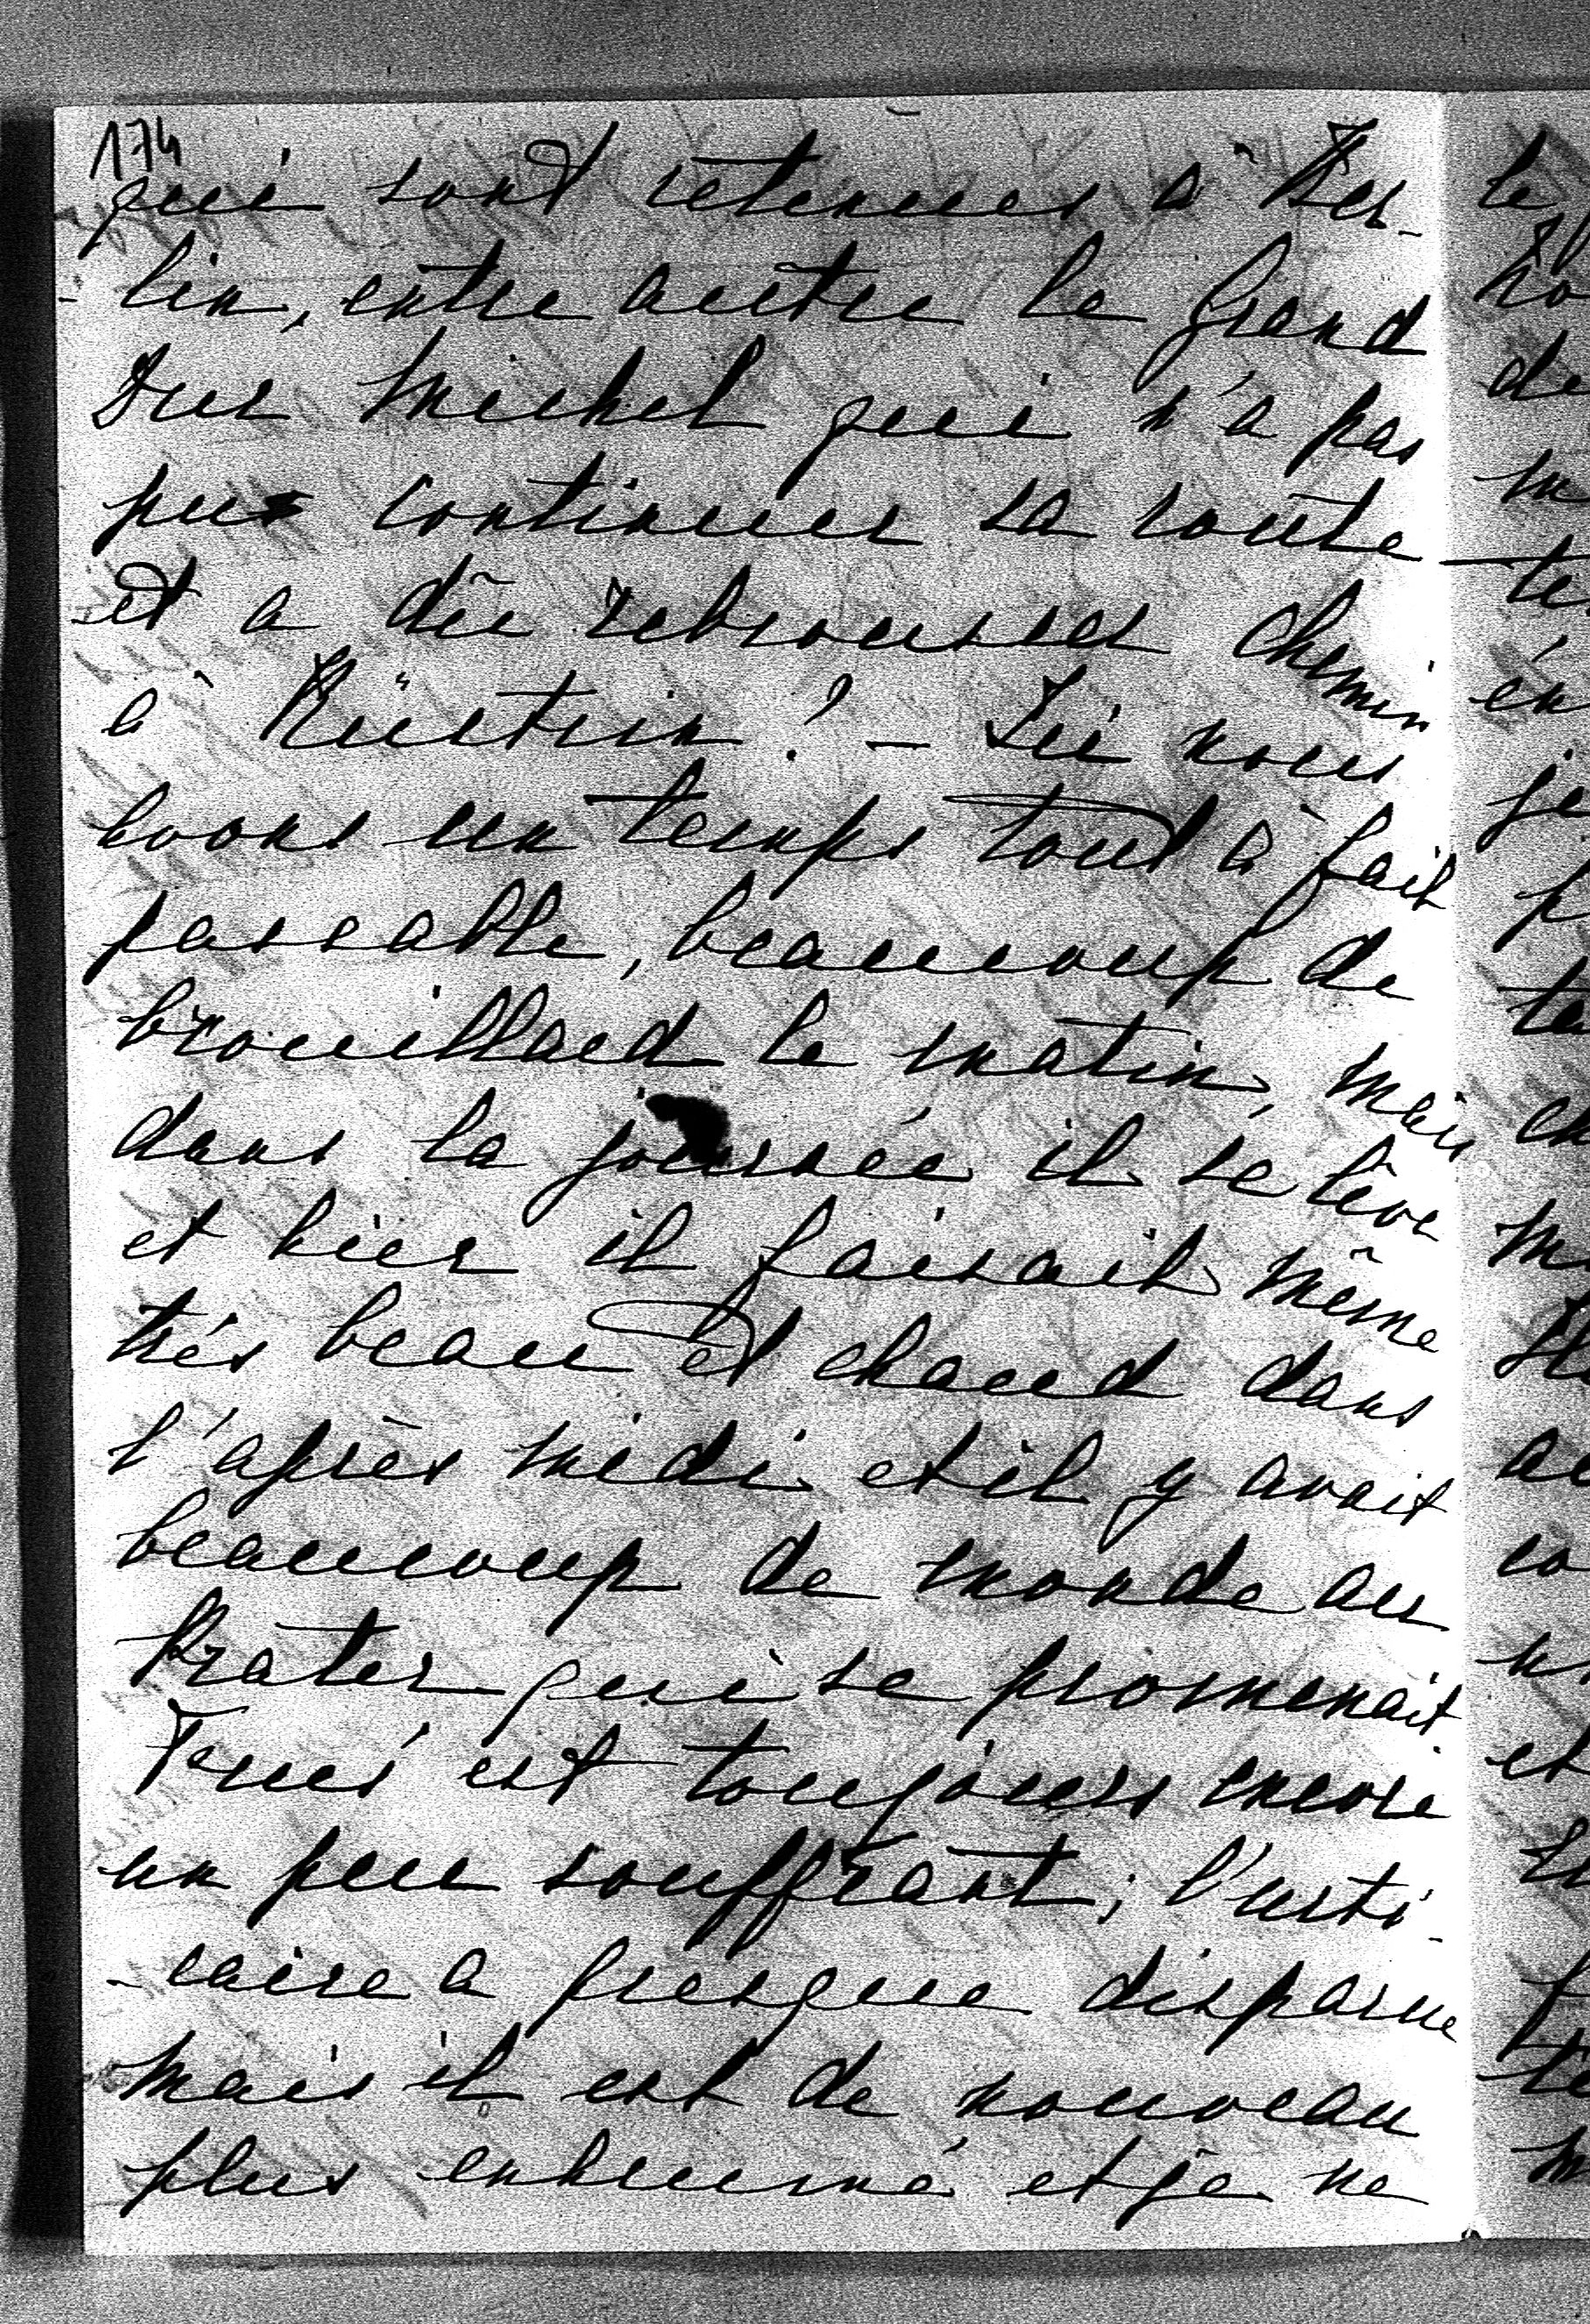 174
qui sont retenues à Ber-
-lin, entre autre le grand
Duc Michel qui n'a pas
pu continuer sa route
et a dû rebrousser chemin
à Küstrin! - Ici nous
avons un temps tout à fait
passable, beaucoup de
brouillard le matin, mais
dans la journée il se lève
et hier il faisait même
très beau et chaud dans
l'après midi et il y avait
beaucoup de monde au
Prater qui se promenait
est toujours encore
un peu souffrant; l'urti-
-caire a presque disparue
mais il est de nouveau
plus enrhumé et je ne